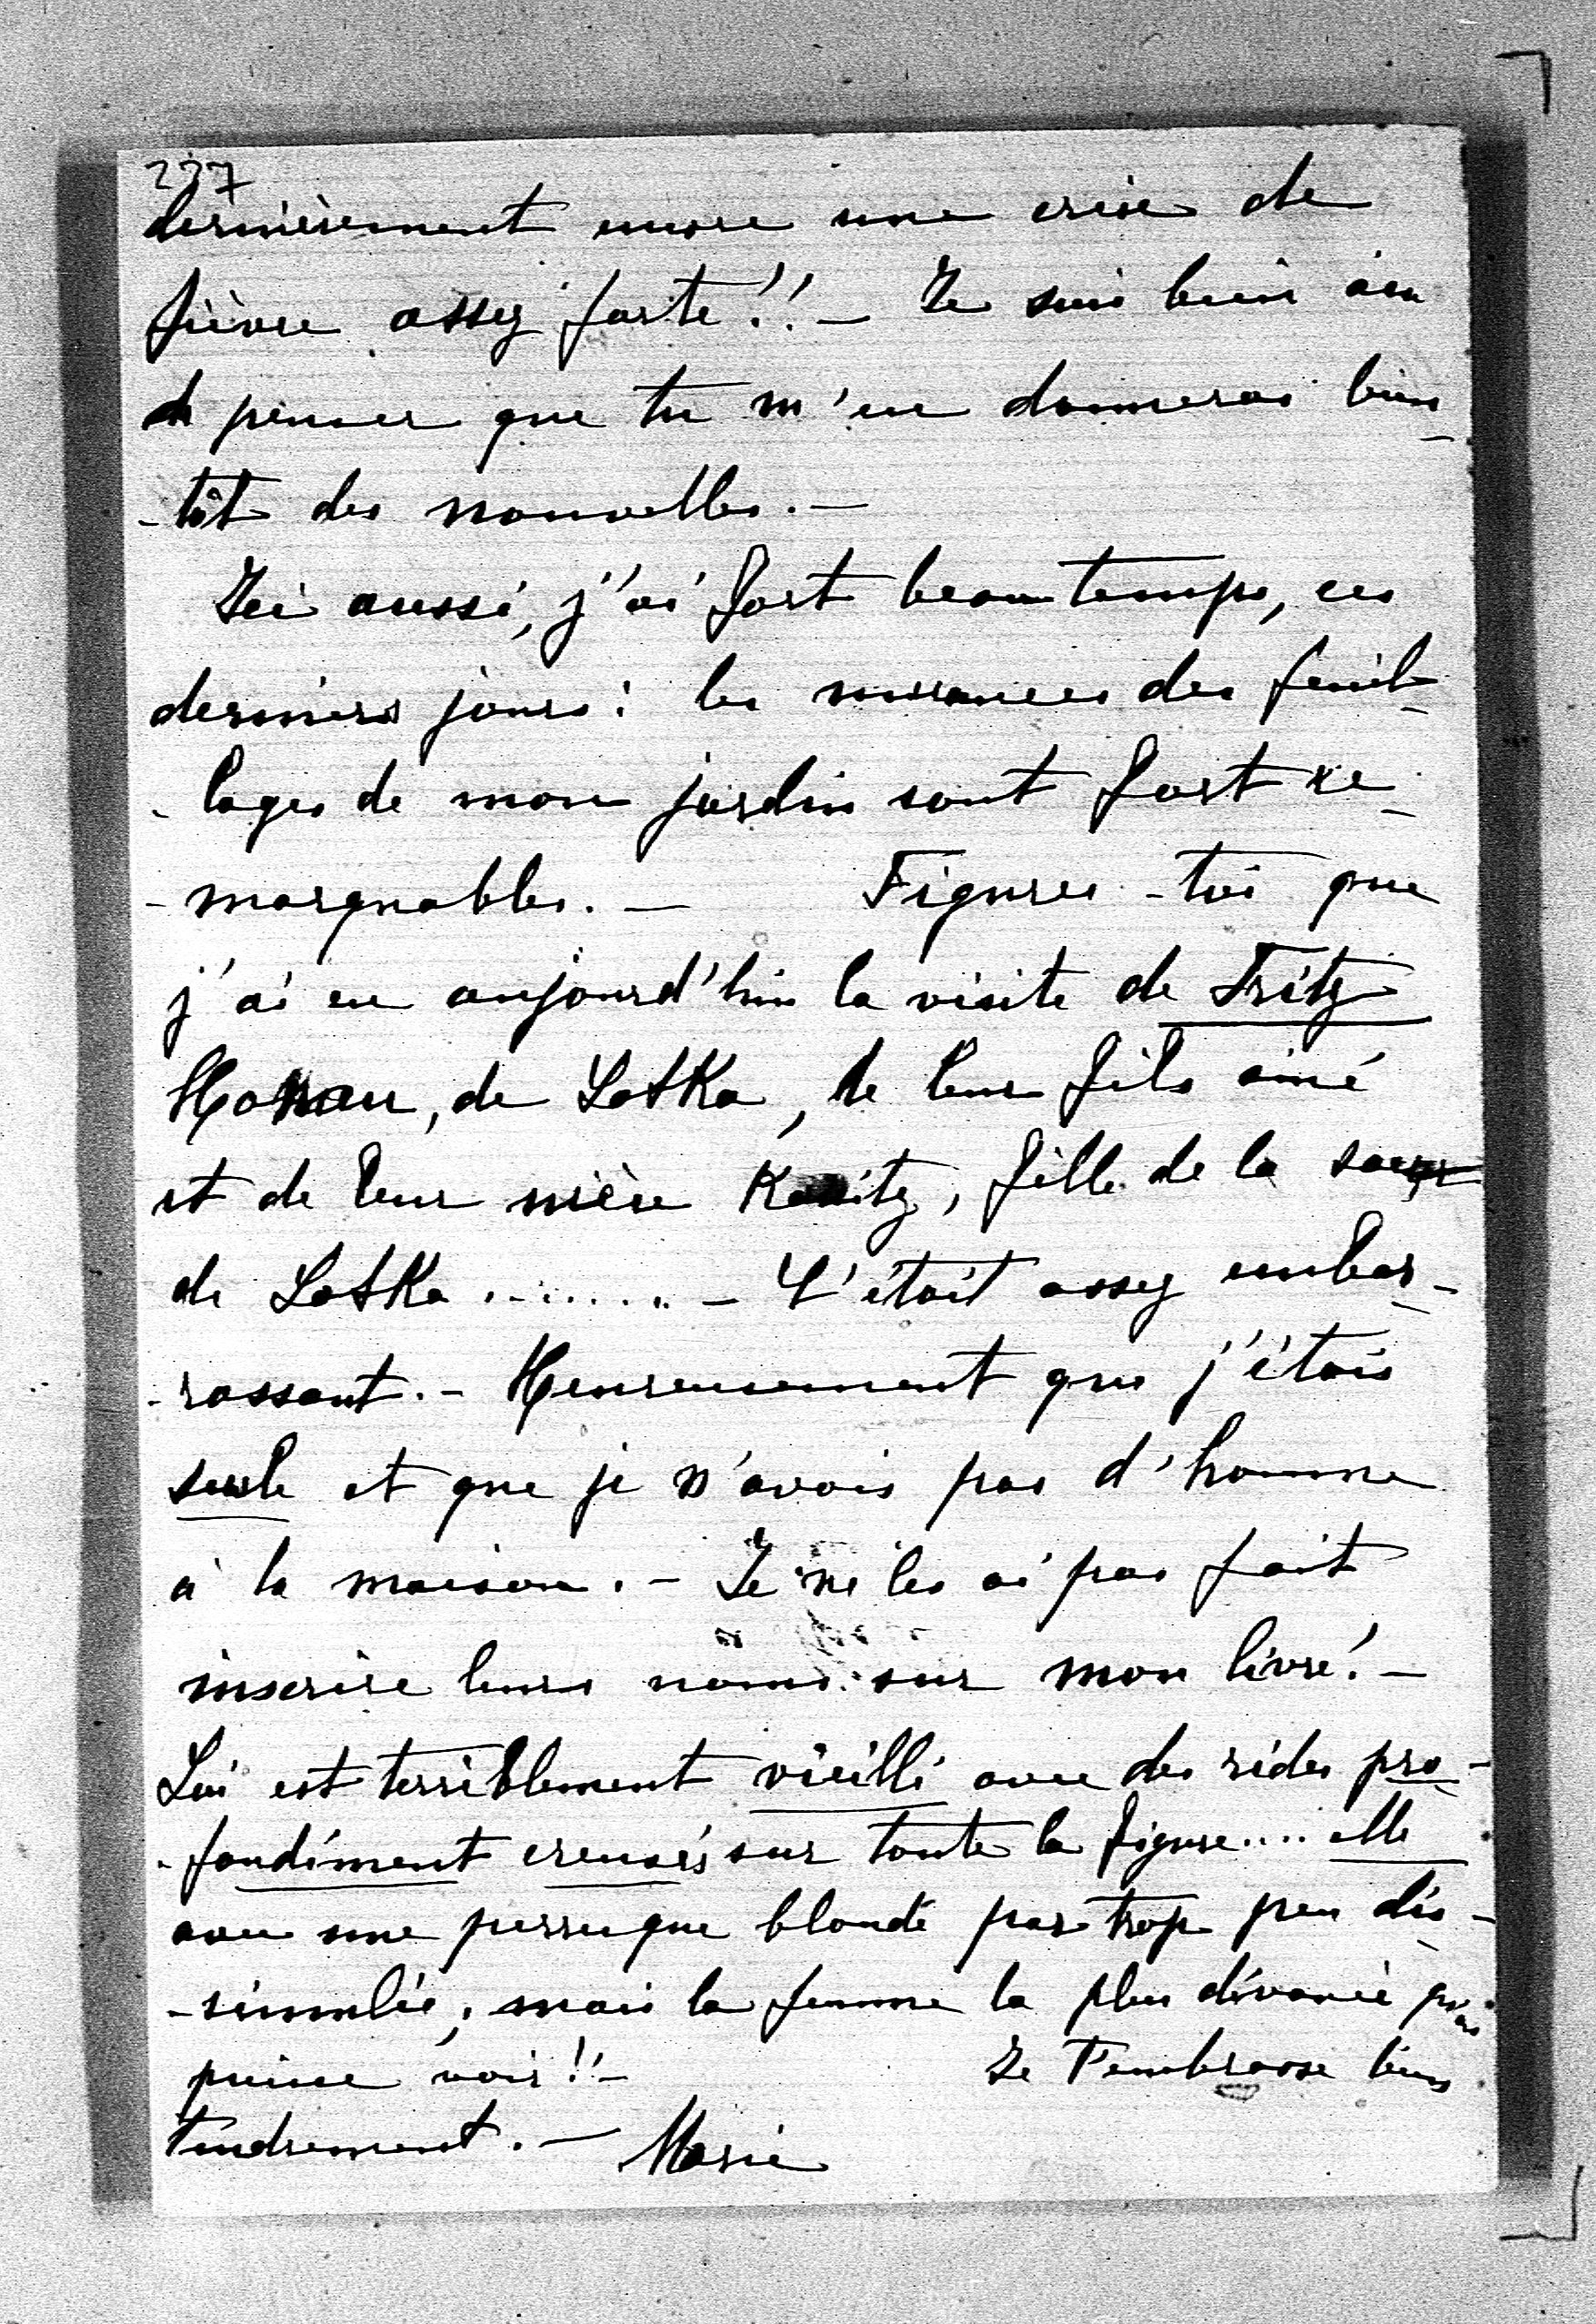 227
dernièrement encore une crise de
fièvre assez forte!! — Je suis bien aise
de penser que tu m'en donneras bien-
-tôt des nouvelles. —
Ici aussi, j'ai fort beau temps, ces
derniers jours: les nuances des feuil-
-lages de mon jardin sont fort re-
-marquables. — Figures-toi que
j'ai eu aujourd'hui la visite de Fritz
Honau, de Lotka, de leur fils aîné
et de leur nièce Kanitz, fille de la soeur
de Lotka ........ — C'était assez embar-
-rassant. — Heureusement que j'étais
seule et que je n'avais pas d'homme
à la maison. — Je ne les ai pas fait
inscrire leurs noms sur mon livre! —
Lui est terriblement vieilli avec des rides pro-
-fondément creusés sur toute la figure.... elle
avec une perruque blonde par trop peu dis-
-simulée, mais la femme la plus dévouée qu'on
puisse voir!! — Je t'embrasse bien
tendrement. — Marie